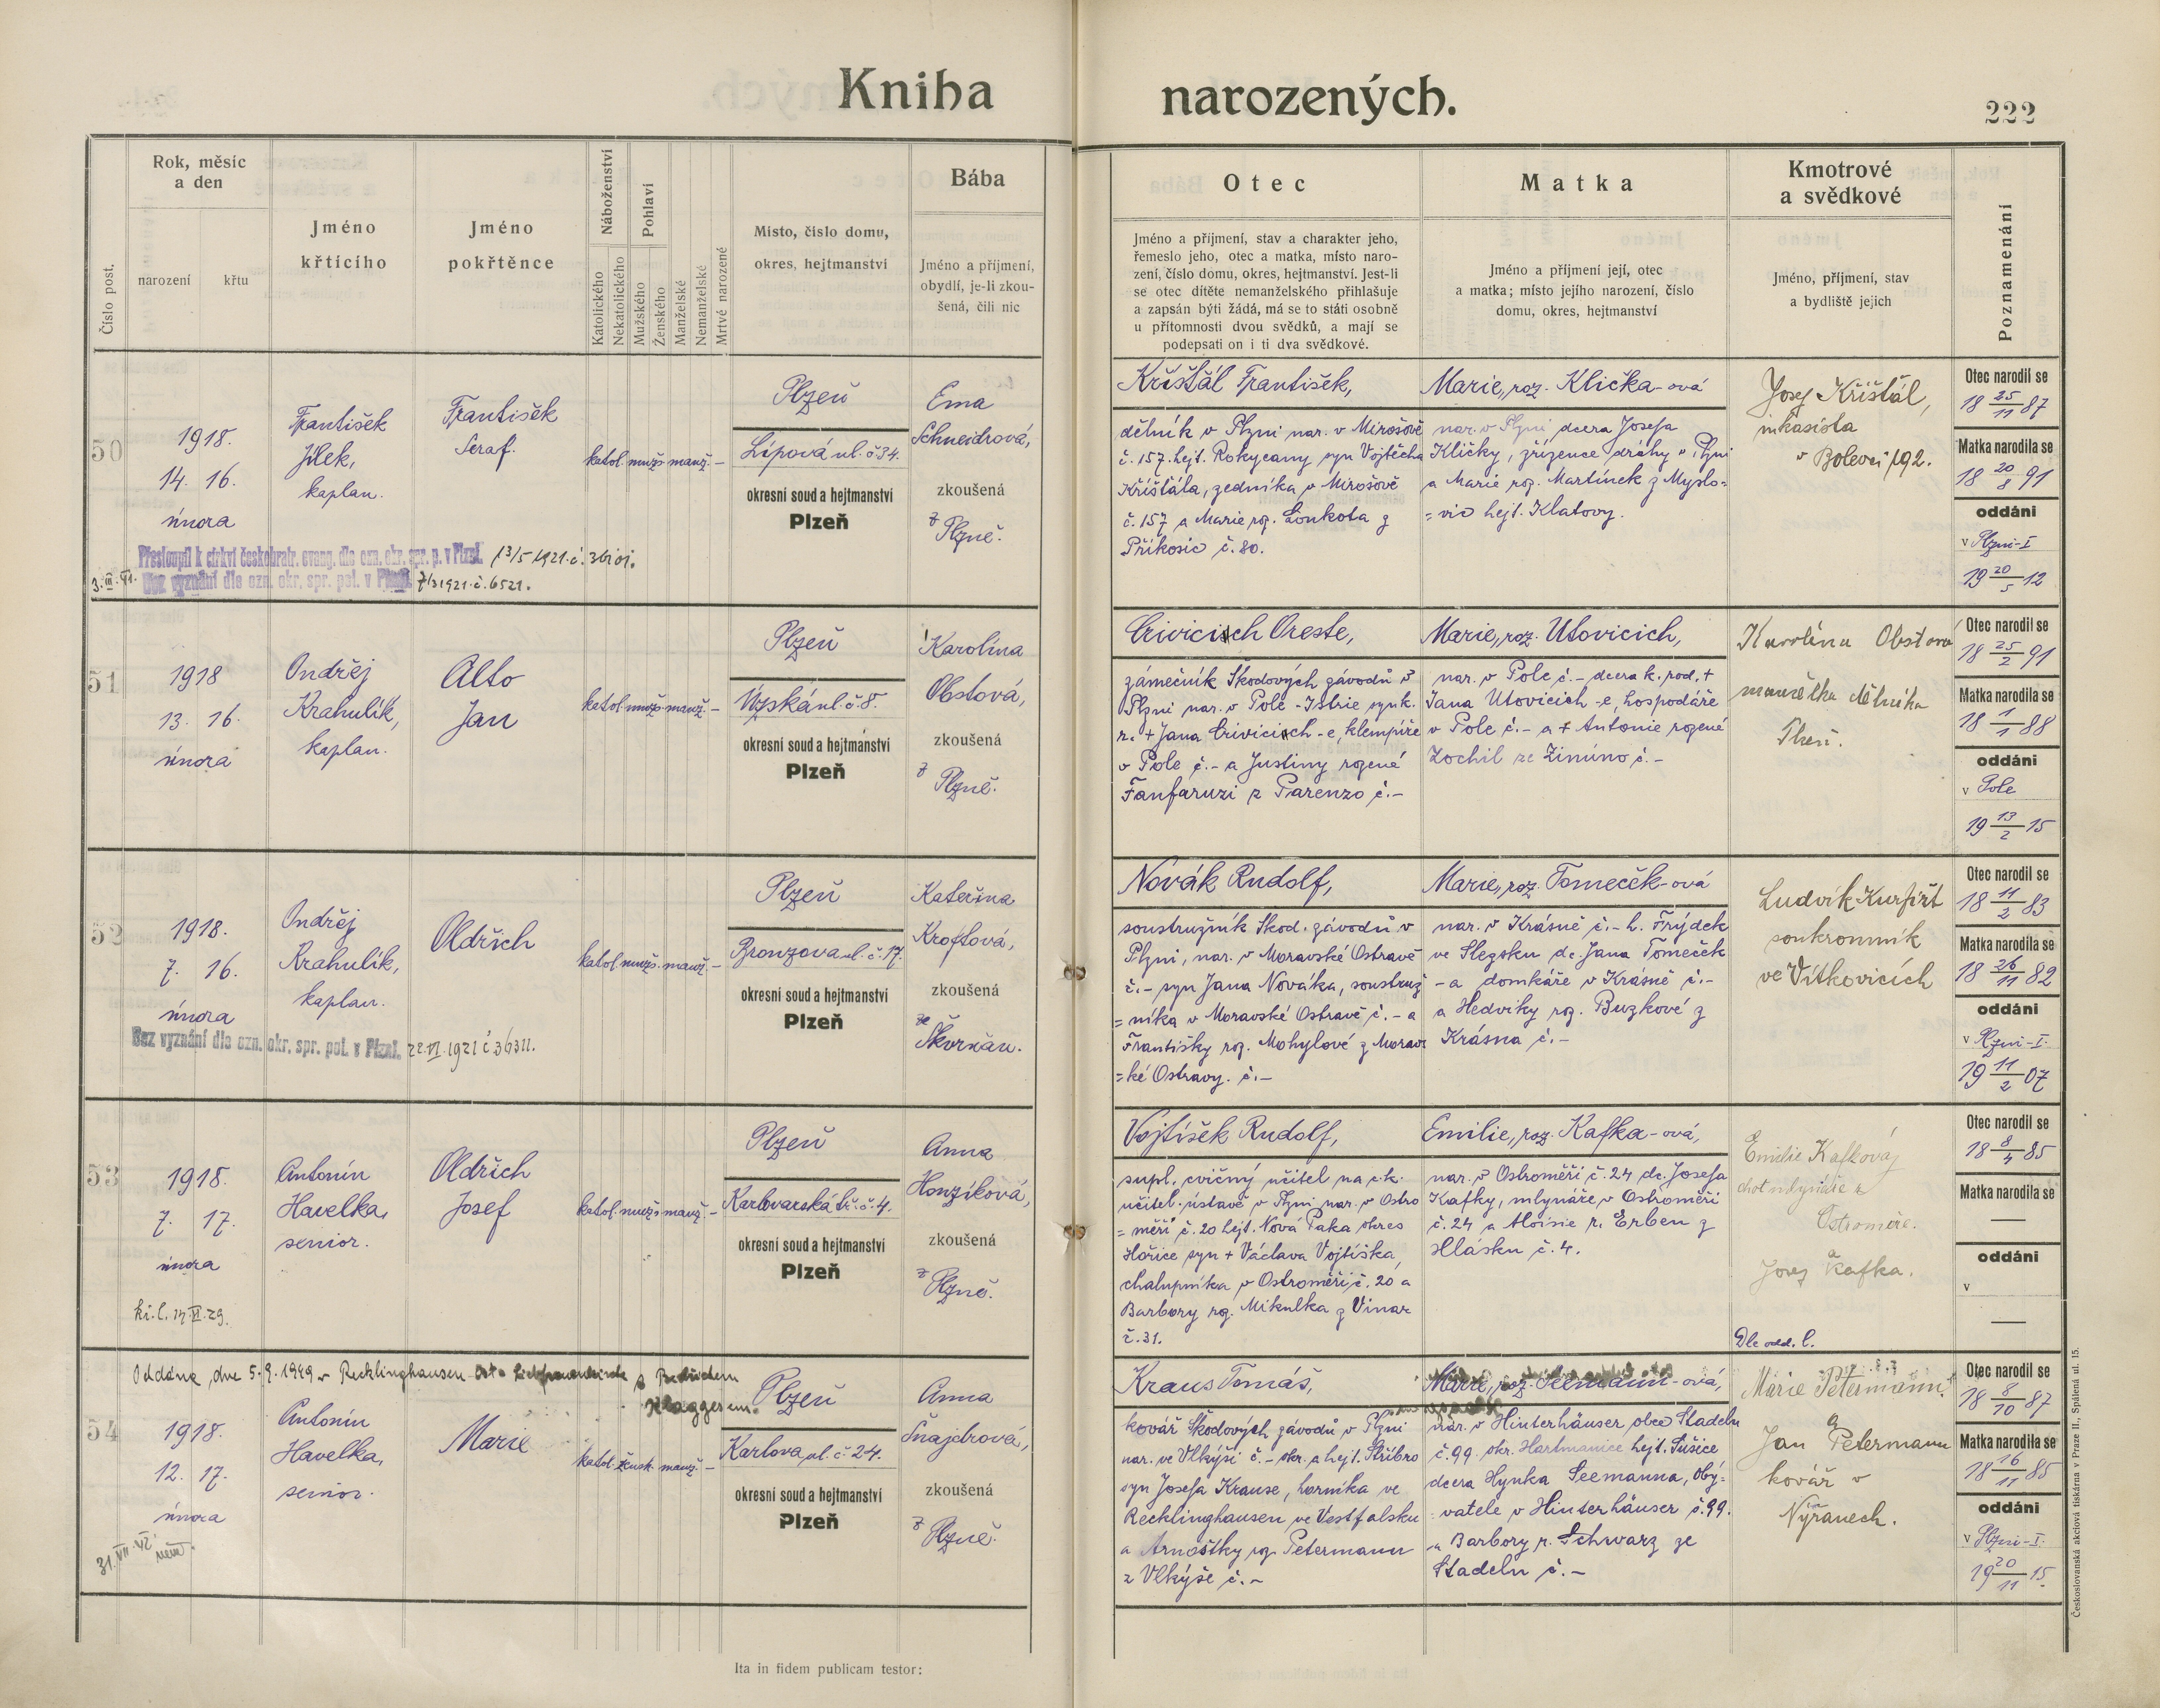 Kniha narozených.
222
Číslo post.
Rok, měsíc
a den
narození
křtu
Jméno
křticího
Jméno
pokřtěnce
Náboženství
Katolického
Nekatolického
Pohlaví
Mužského
Ženského
Manželské
Nemanželské
Mrtvě narozené
Místo, číslo domu,
okres, hejtmanství
Bába
Jméno a příjmení,
obydlí, je-li zkou-
šená, čili nic
Otec
Jméno a příjmení, stav a charakter jeho,
řemeslo jeho, otec a matka, místo naro-
zení, číslo domu, okres, hejtmanství. Jest-li
se otec dítěte nemanželského přihlašuje
a zapsán býti žádá, má se to státi osobně
u přítomnosti dvou svědků, a mají se
podepsati on i ti dva svědkové.
Matka
Jméno a příjmení její, otec
a matka; místo jejího narození, číslo
domu, okres, hejtmanství
Kmotrové
a svědkové
Jméno, příjmení, stav
a bydliště jejich
Poznamenání
50
1918.
14. 16.
února
František
Jílek,
kaplan.
František
Seraf.
katol. mužs. manž. –
Plzeň
Lípová ul. č. 34.
okresní soud a hejtmanství
Plzeň
Ema
Schneidrová,
zkoušená
z Plzně.
Přestoupil k církvi českobratr. evang. dle ozn. okr. spr. p. v Plzni.
Bez vyznání dle ozn. okr. spr. pol. v Plzni. 7/3 1921. č. 6521.
Křišťál František,
dělník v Plzni nar. v Mirošově
č. 157. hejt. Rokycany syn Vojtěcha
Křišťála, zedníka v Mirošově
č. 157 a Marie roz. Loukota z
Příkosic č. 80.
Marie, roz. Klička-ová
nar. v Plzni dcera Josefa
Kličky, zřízence dráhy v Plzni
a Marie roz. Martínek z Myslo=
=vic hejt. Klatovy.
Josef Křišťál,
inkasista
v Bolevci 192.
Otec narodil se
18 25/11 87
Matka narodila se
18 20/8 91
oddáni
v Plzni-I
19 20/5 12
51
1918
13. 16.
února
Ondřej
Krahulík,
kaplan.
Alto
Jan
katol. mužs. manž. –
Plzeň
Úzská ul. č. 8.
okresní soud a hejtmanství
Plzeň
Karolína
Obstová,
zkoušená
z Plzně.
Crivicisch Oreste,
zámečník Škodových závodů v
Plzni nar. v Pole - Istrie syn k.
r. + Jana Crivicisch-e, klempíře
v Pole č. – a Justiny rozené
Fanfaruzi z Parenzo č. –
Marie, roz. Utovicich,
nar. v Pole č. – dcera k. rod. +
Jana Utovicich-e, hospodáře
v Pole č. – a + Antonie rozené
Zochil ze Zinúno č. –
Karolína Obstová
manželka dělníka
Plzeň.
Otec narodil se
18 25/2 91
Matka narodila se
18 1/1 88
oddáni
v Pole
19 13/2 15
52
1918.
7. 16.
února
Ondřej
Krahulík,
kaplan.
Oldřich
katol. mužs. manž. –
Plzeň
Bronzova ul. č. 17.
okresní soud a hejtmanství
Plzeň
Kateřina
Kroftová,
zkoušená
ze Škvrňan.
Bez vyznání dle ozn. okr. spr. pol. v Plzni. 22.VI.1921 č 36311.
Novák Rudolf,
soustružník Škod. závodů v
Plzni, nar. v Moravské Ostravě
č. – syn Jana Nováka, soustruž
=níka v Moravské Ostravě č. – a
Františky roz. Mohylové z Morav
=ké Ostravy. č. –
Marie, roz. Tomeček-ová
nar. v Krásné č. – h. Frýdek
ve Slezsku dc. Jana Tomeček
-a domkáře v Krásné č. –
a Hedviky roz. Buzkové z
Krásna č. –
Ludvík Kurfiřt
soukromník
ve Vítkovicích
Otec narodil se
18 11/2 83
Matka narodila se
18 26/11 82
oddáni
v Plzni-I.
19 11/2 07
53
1918.
7. 17.
února
Antonín
Havelka,
senior.
Oldřich
Josef
katol. mužs. manž. –
Plzeň
Karlovarská tř. č. 4.
okresní soud a hejtmanství
Plzeň
Anna
Honzíková,
zkoušená
z Plzně.
Vojtíšek Rudolf,
supl. cvičný učitel na c. k.
učitel. ústavě v Plzni nar. v Ostro
=měři č. 20 hejt. Nová Paka, okres
Hořice syn + Václava Vojtíška,
chalupníka v Ostroměři č. 20 a
Barbory roz. Mikulka z Vinar
č. 31.
Emilie, roz. Kafka-ová,
nar. v Ostroměři č. 24 dc. Josefa
Kafky, mlynáře v Ostroměři
č. 24 a Aloisie r. Erben z
Hlásku č. 4.
Emilie Kafková,
choť mlynáře z
Ostroměře.
a
Josef Kafka.
Dle odd. l.
Otec narodil se
18 8/4 85
Matka narodila se
—
oddáni
v
—
Oddána dne 5.9.1949 v Recklinghausen
54
1918.
12. 17.
února
Antonín
Havelka,
senior.
Marie
katol. žensk. manž. –
Plzeň
Karlova ul. č. 24.
okresní soud a hejtmanství
Plzeň
Anna
Šnajdrová,
zkoušená
z Plzně.
Kraus Tomáš,
kovář Škodových závodů v Plzni
nar. ve Vlkýši č. – okr. a hejt. Stříbro
syn Josefa Krause, horníka ve
Recklinghausen ve Vestfalsku
a Arnoštky roz. Petermann
z Vlkýše č. –
Marie, roz. Seemann-ová,
nar. v Hinterhäuser obce Stadeln
č. 99. okr. Hartmanice hejt. Sušice
dcera Hynka Seemanna, oby-
vatele v Hinterhäuser č. 99.
a Barbory r. Schwarz ze
Stadeln č. –
Marie Petermann
a
Jan Petermann
kovář v
Nýřanech.
Otec narodil se
18 8/10 87
Matka narodila se
18 16/11 85
oddáni
v Plzni-I.
19 20/11 15.
Ita in fidem publicam testor:
Českoslovanská akciová tiskárna v Praze II., Spálená ul. 15.